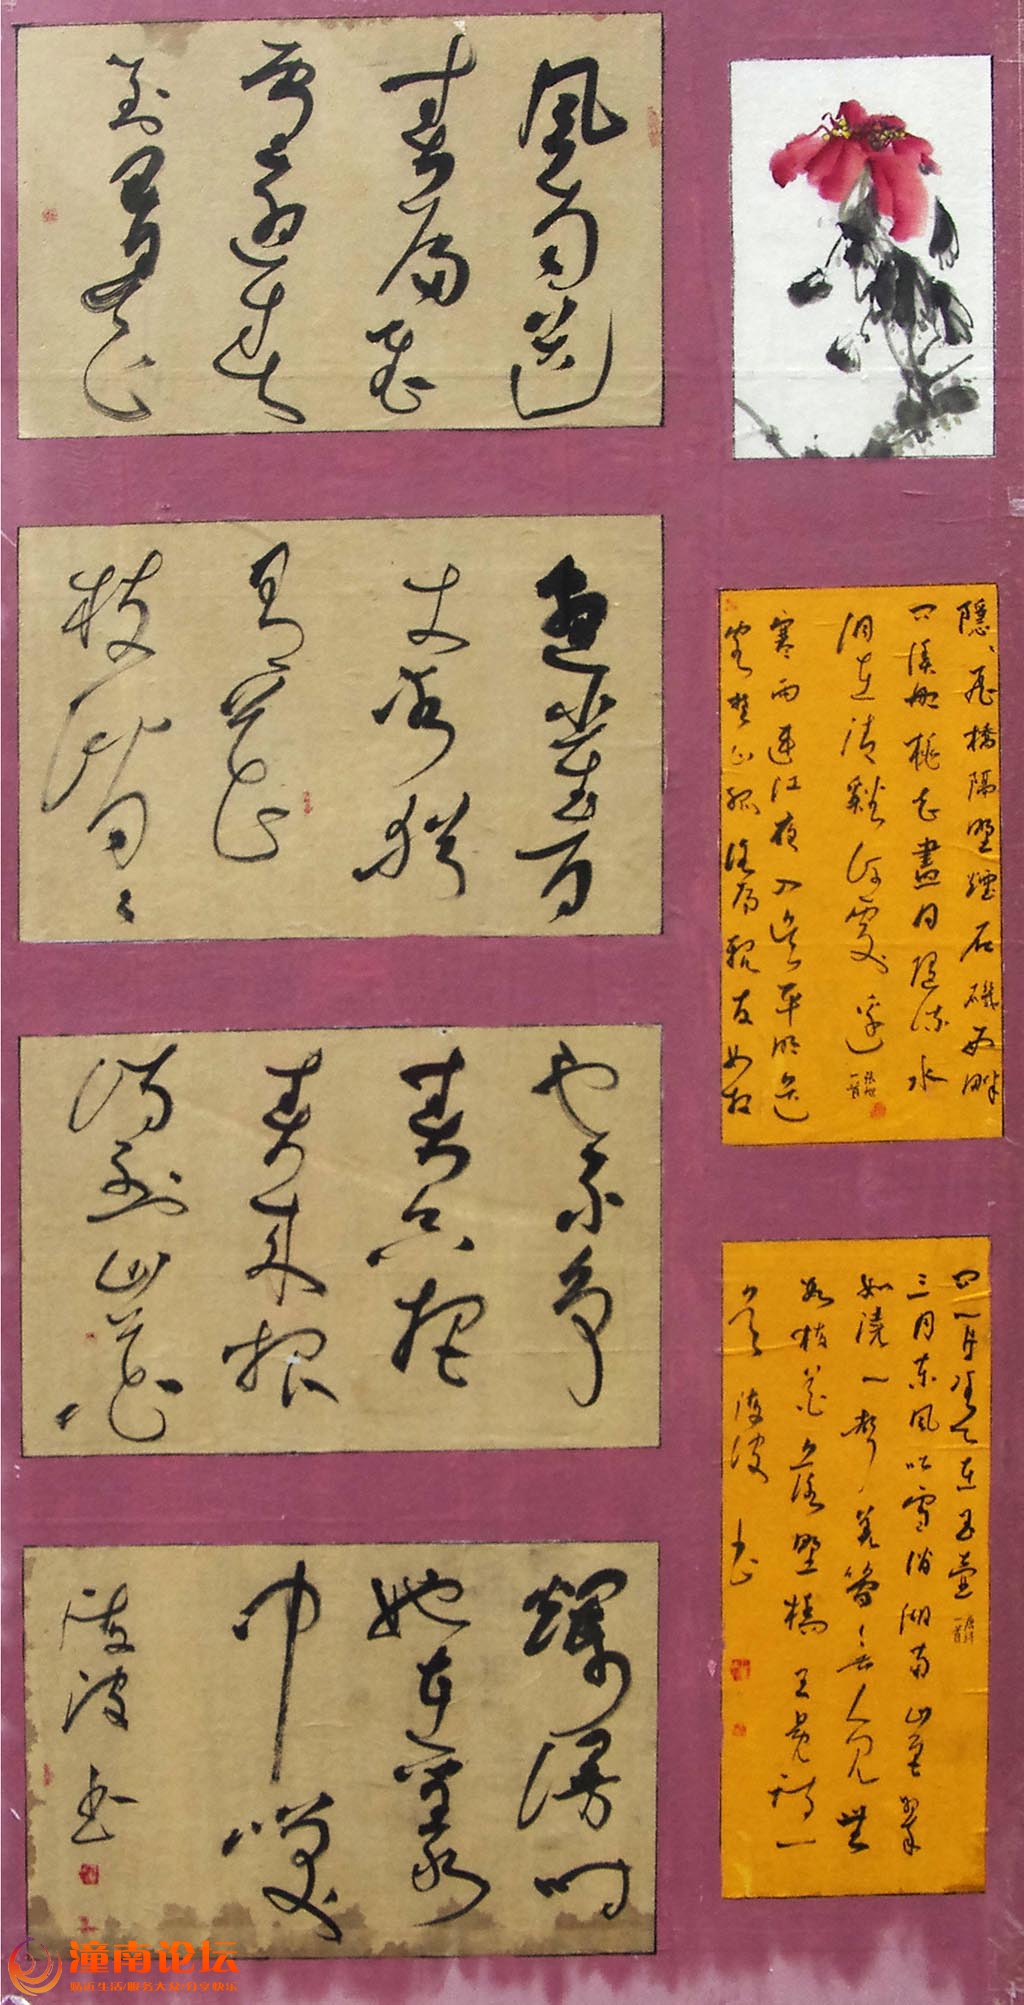 風雨送
春歸飛
雪迎春
到已是
懸崖百
丈冰猶
有花
枝俏々
也不争
春只把
春来报
待到山花
爛漫时
她在叢
中笑
波书
隱、飛橋隔野煙石磯西畔
问漁船桃花盡日隨流水
洞在清谿何處邊
寒雨連江夜入吳平明送
客楚山孤洛陽親友如相
问一片冰心在玉壺
三月東風吹雪消湖南山色翠
如澆一聲羌管无人见無
數梅花落野橋 王冕詩一
首 波 书
潼南论坛
贴近生活/服务大众/分享快乐